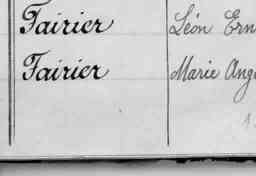 Fairier Léon Ern
Fairier Marie Ang